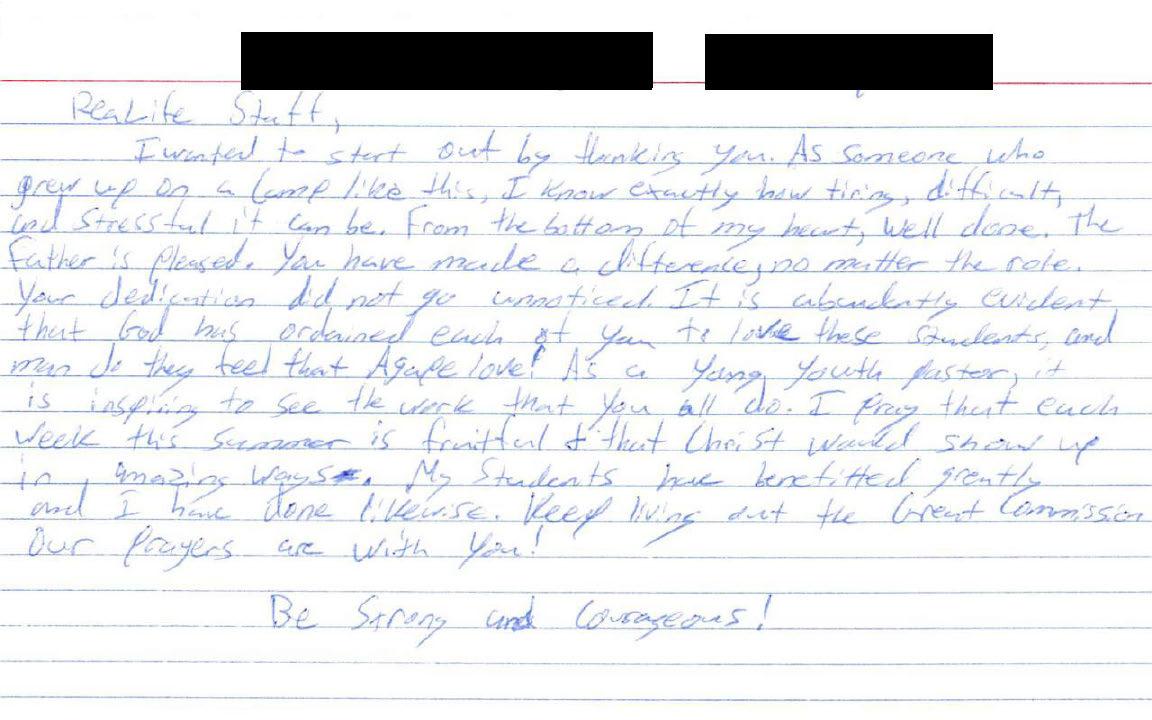 ReaLife Staff,
I wanted to start out by thanking you. As someone who
grew up on a Camp like this, I know exactly how tiring, difficult,
and stressful it can be. From the bottom of my heart, Well done. The
Father is pleased. You have made a difference, no matter the role.
Your dedication did not go unnoticed. It is abundently evident
that God has ordained each of you to love these students, and
man do they feel that Agape love! As a young youth pastor, it
is inspiring to see the work that you all do. I pray that each
week this summer is fruitful & that Christ would show up
in amazing ways. My Students have benefitted greatly
and I have done likewise. Keep living out the Great Commission
Our prayers are with you!
Be Strong and Courageous!